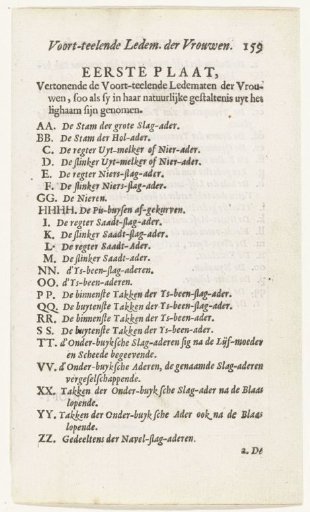 Voort-teelende Ledem. der Vrouwen. 159
EERSTE PLAAT,
Vertonende de Voort-teelende Ledematen der Vrou-
wen, soo als sy in haar natuurlijke gestaltenis uyt het
lighaam sijn genomen.
AA. De Stam der grote Slag-ader.
BB. De Stam der Hol-ader.
C. De regter Uyt-melker of Nier-ader.
D. De slinker Uyt-melker of Nier-ader.
E. De regter Niers-slag-ader.
F. De slinker Niers-slag-ader.
GG. De Nieren.
HHHH. De Pis-buysen af-gekurven.
I. De regter Saadt-slag-ader.
K. De slinker Saadt-slag-ader.
L. De regter Saadt-Ader.
M. De slinker Saadt-ader.
NN. d'Ys-been-slag-aderen.
OO. d'Ys-been-aderen.
PP. De binnenste Takken der Ys-been-slag-ader.
QQ. De buytenste Takken der Ys-been-slag-ader.
RR. De binnenste Takken der Ys-been-ader.
SS. De buytenste Takken der Ys-been-ader.
TT. d'Onder-buyksche Slag-aderen sig na de Lijf-moeder
en Scheede begeevende.
VV. d'Onder-buyksche Aderen, de genaamde Slag-aderen
vergeselschappende.
XX. Takken der Onder-buyksche Slag-ader na de Blaas
lopende.
YY. Takken der Onder-buyksche Ader ook na de Blaas
lopende.
ZZ. Gedeeltens der Navel-slag-aderen.
a. De